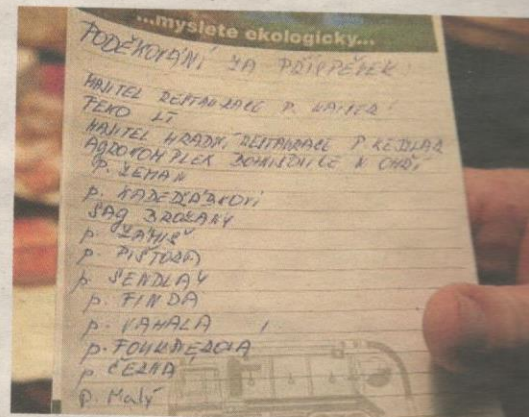 ...myslete ekologicky...
PODĚKOVÁNÍ ZA PŘÍSPĚVEK!
MAJITEL RESTAURACE P. KAISER!
FEKO LT
MAJITEL HRADNÍ RESTAURACE P. SEDLAR
AGROKOMPLEX N OHŘÍ
P. ZEMAN
P. KADEŘÁBKOVI
SAG BROZANY
P. ZAMIŠ
P. PIŠTORA
P. SENDLAY
P. FINDA
P. VAHALA !
P.
P. ČERNÁ
P. Malý